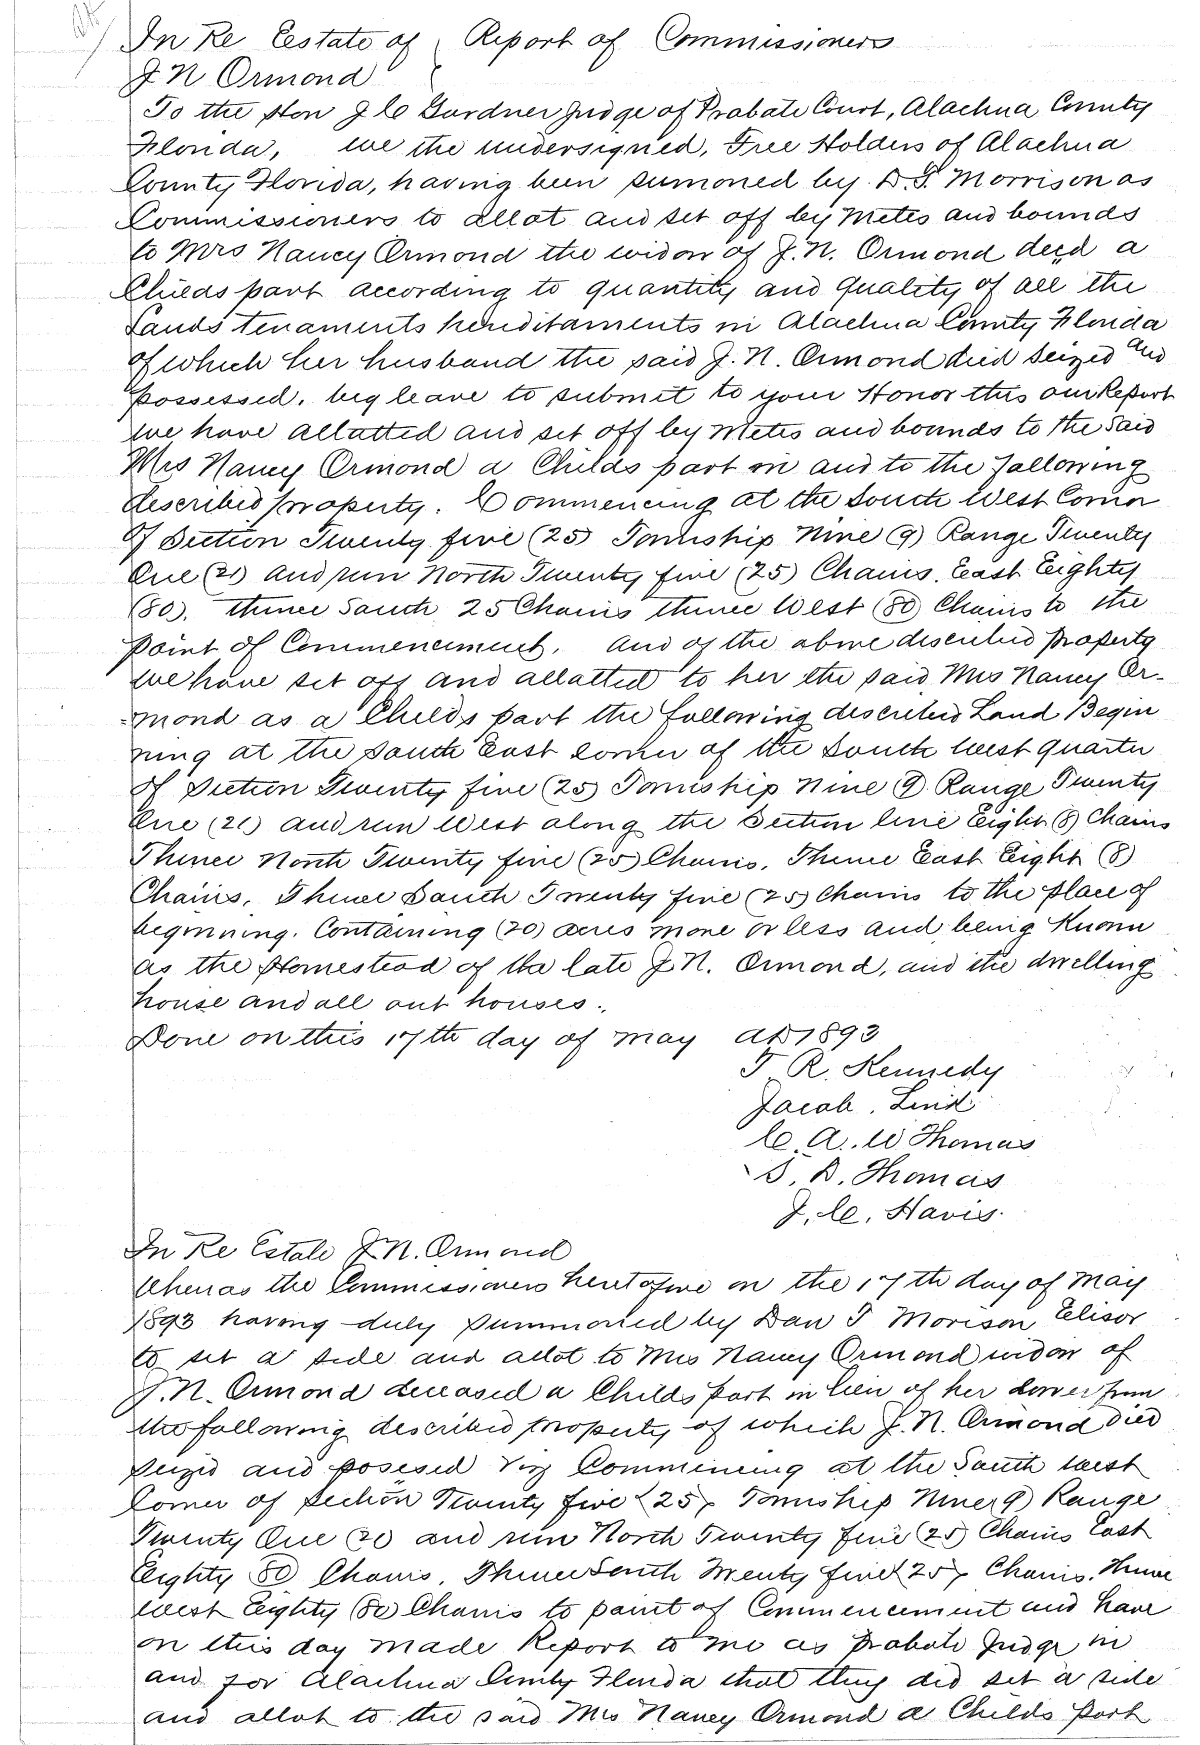 In Re Eestate of { Report of Commissioners
J N Ormond
To the Hon J C Gardner Judge of Probate Court, Alachua County
Florida, we the undersigned, Free Holders of Alachua
County Florida, having been sumoned by D. T. Morrison as
Commissioners to allot and set off by Metes and bounds
to Mrs Nancy Ormond the widow of J. N. Ormond decd a
Childs part according to quantity and quality of all the
Lands tenaments hereditaments in Alachua County Florida
of which her husband the said J. N. Ormond died seized and
possessed. beg leave to submit to your Honor this our Report
we have allatted and set off by Metes and bounds to the said
Mrs Nancy Ormond a Childs part in and to the following
described property. Commencing at the South West Corner
of Section Twenty five (25) Township Nine (9) Range Twenty
One (21) and run North Twenty five (25) Chains. East Eighty
(80). thence South 25 Chains thence West (80) Chains to the
point of Commencement. and of the above described property
we have set off and allatted to her the said Mrs Nancy Or-
mond as a Childs part the following described Land Begin
ning at the South East corner of the South West quarter
of Section Twenty five (25) Township Nine (9) Range Twenty
One (21) and run West along the Section line Eight (8) Chains
Thence North Twenty five (25) Chains. Thence East Eight (8)
Chains. Thence South Twenty five (25) Chains to the place of
beginning. Containing (20) acres more or less and being Known
as the Homestead of the late J. N. Ormond, and the dwelling
house and all out houses.
Done on this 17th day of May AD 1893
T. R. Kennedy
Jacob. Lind
C. A. W Thomas
S. D. Thomas
J. C. Havis.
In Re Estate J. N. Ormond
Whereas the Commissioners heretofore on the 17th day of May
1893 having duly summoned by Dan T Morison Elisor
to set a side and allot to Mrs Nancy Ormond widow of
J. N. Ormond deceased a Childs part in lieu of her dower from
the following described property of which J. N. Ormond died
seized and posesed viz Commencing at the South west
Corner of Section Twenty five (25) Township Nine (9) Range
Twenty One (21) and run North Twenty five (25) Chains East
Eighty (80) Chains. Thence South Twenty five (25) Chains. thence
West Eighty (80) Chains to point of Commencement and have
on this day made Report to me as Probate Judge in
and for Alachua County Florida that they did set a side
and allot to the said Mrs Nancy Ormond a Childs part